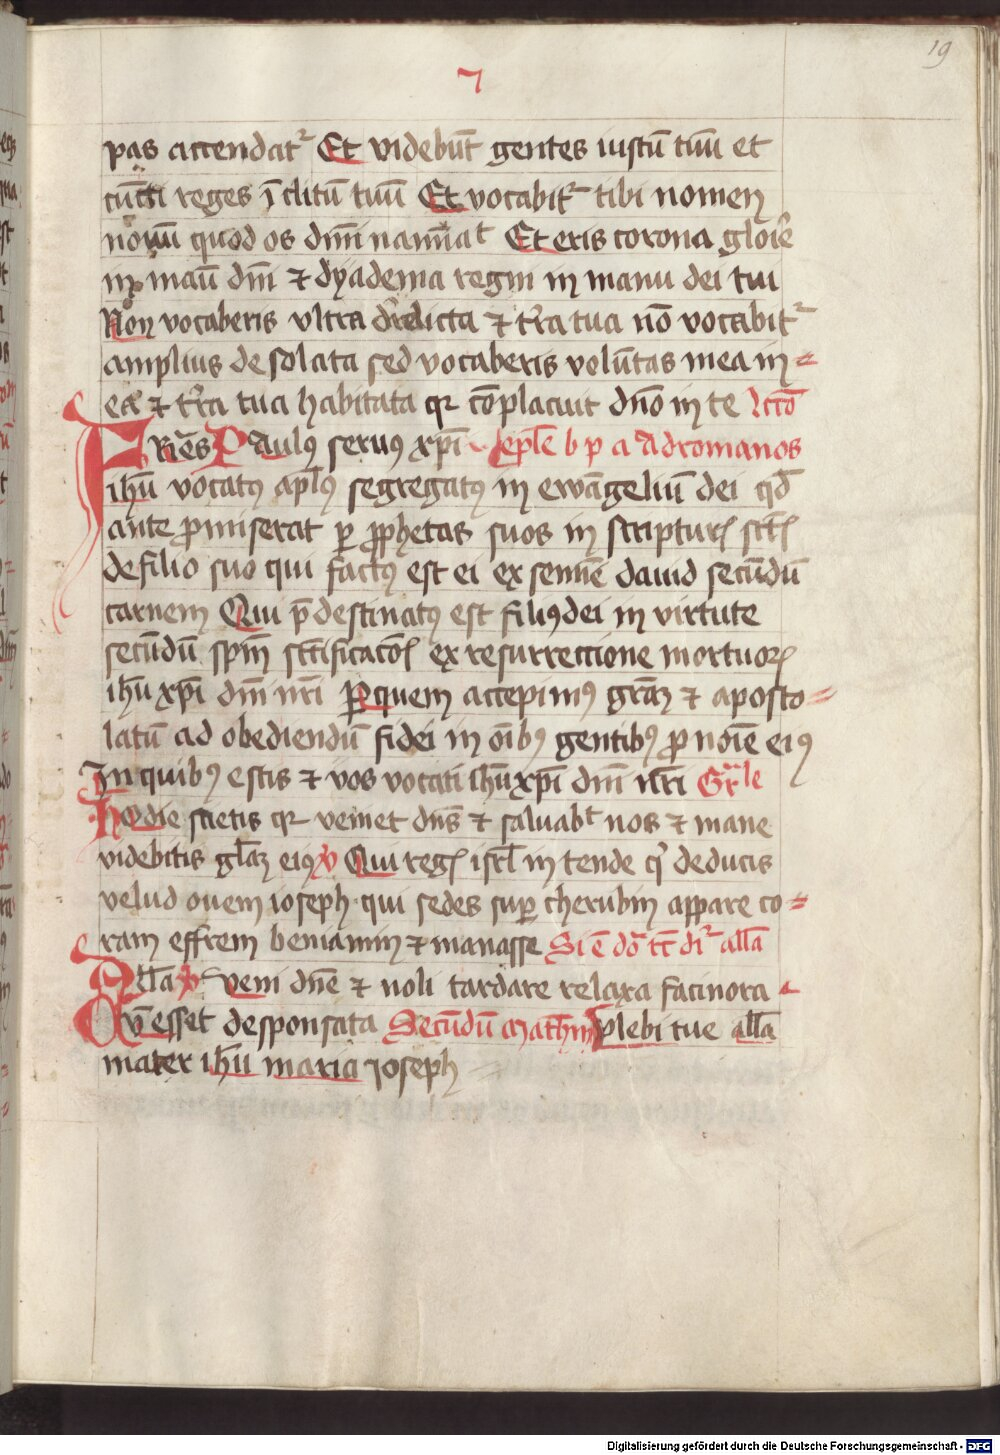 19
7
pas accendat᷑ Et videbūt gentes iustū tuū et
cūcti reges īclitū tuū Et vocabit᷑ tibi nomen
nouū quod os dn̄i naminat Et eris corona glorie
in manū dn̄i ⁊ dyadema regni in manu dei tui
Non vocaberis vltra derelicta ⁊ tr̄ra tua nō vocabit᷑
amplius desolata sed vocaberis volūtas mea in
ea ⁊ tr̄ra tua habitata qr cōplacuit dn̄o in te lcc̄o
Fr̄ies Paulꝰ seruꝰ xp̄i ep̄le b p a ad romanos
ih̄u vocatꝰ apl̄ꝰ segregatꝰ in ewāgeliū dei qd̄
ante ꝓmiserat ꝑ ꝓphetas suos in scripturꝭ sct̄ꝭ
de filio suo qui factꝰ est ei ex semīe dauid secūdū
carnem Qui p̄destinatꝰ est filiꝰ dei in virtute
secūdū spm̄ sct̄ificacōꝭ ex resurrectione mortuoꝝ
ih̄u xp̄i dn̄i nr̄i Per quem accepimꝰ grā₃ ⁊ aposto
latū ad obediendū fidei in oībꝰ gentibꝰ ꝓ noīe eiꝰ
In quibꝰ estis ⁊ vos vocati ih̄u xp̄i dn̄i nr̄i Gr̄le
Hodie scietis qr veniet dn̄s ⁊ saluabt nos ⁊ mane
videbitis gl̄az eiꝰ ℣ Qui regꝭ isrl̄ in tende q̄ deducis
velud ouem ioseph qui sedes suꝑ cherubin appare co
ram effrem beniamin ⁊ manasse Si ē do᷑ tc̄ di᷑ all̄a
All̄a ℣ veni dn̄e ⁊ noli tardare relaxa facinora
Qv̄ esset desponsata Secūdū math̄m plebi tue all̄a
mater ih̄u maria ioseph
Digitalisierung gefördert durch die Deutsche Forschungsgemeinschaft - DFG